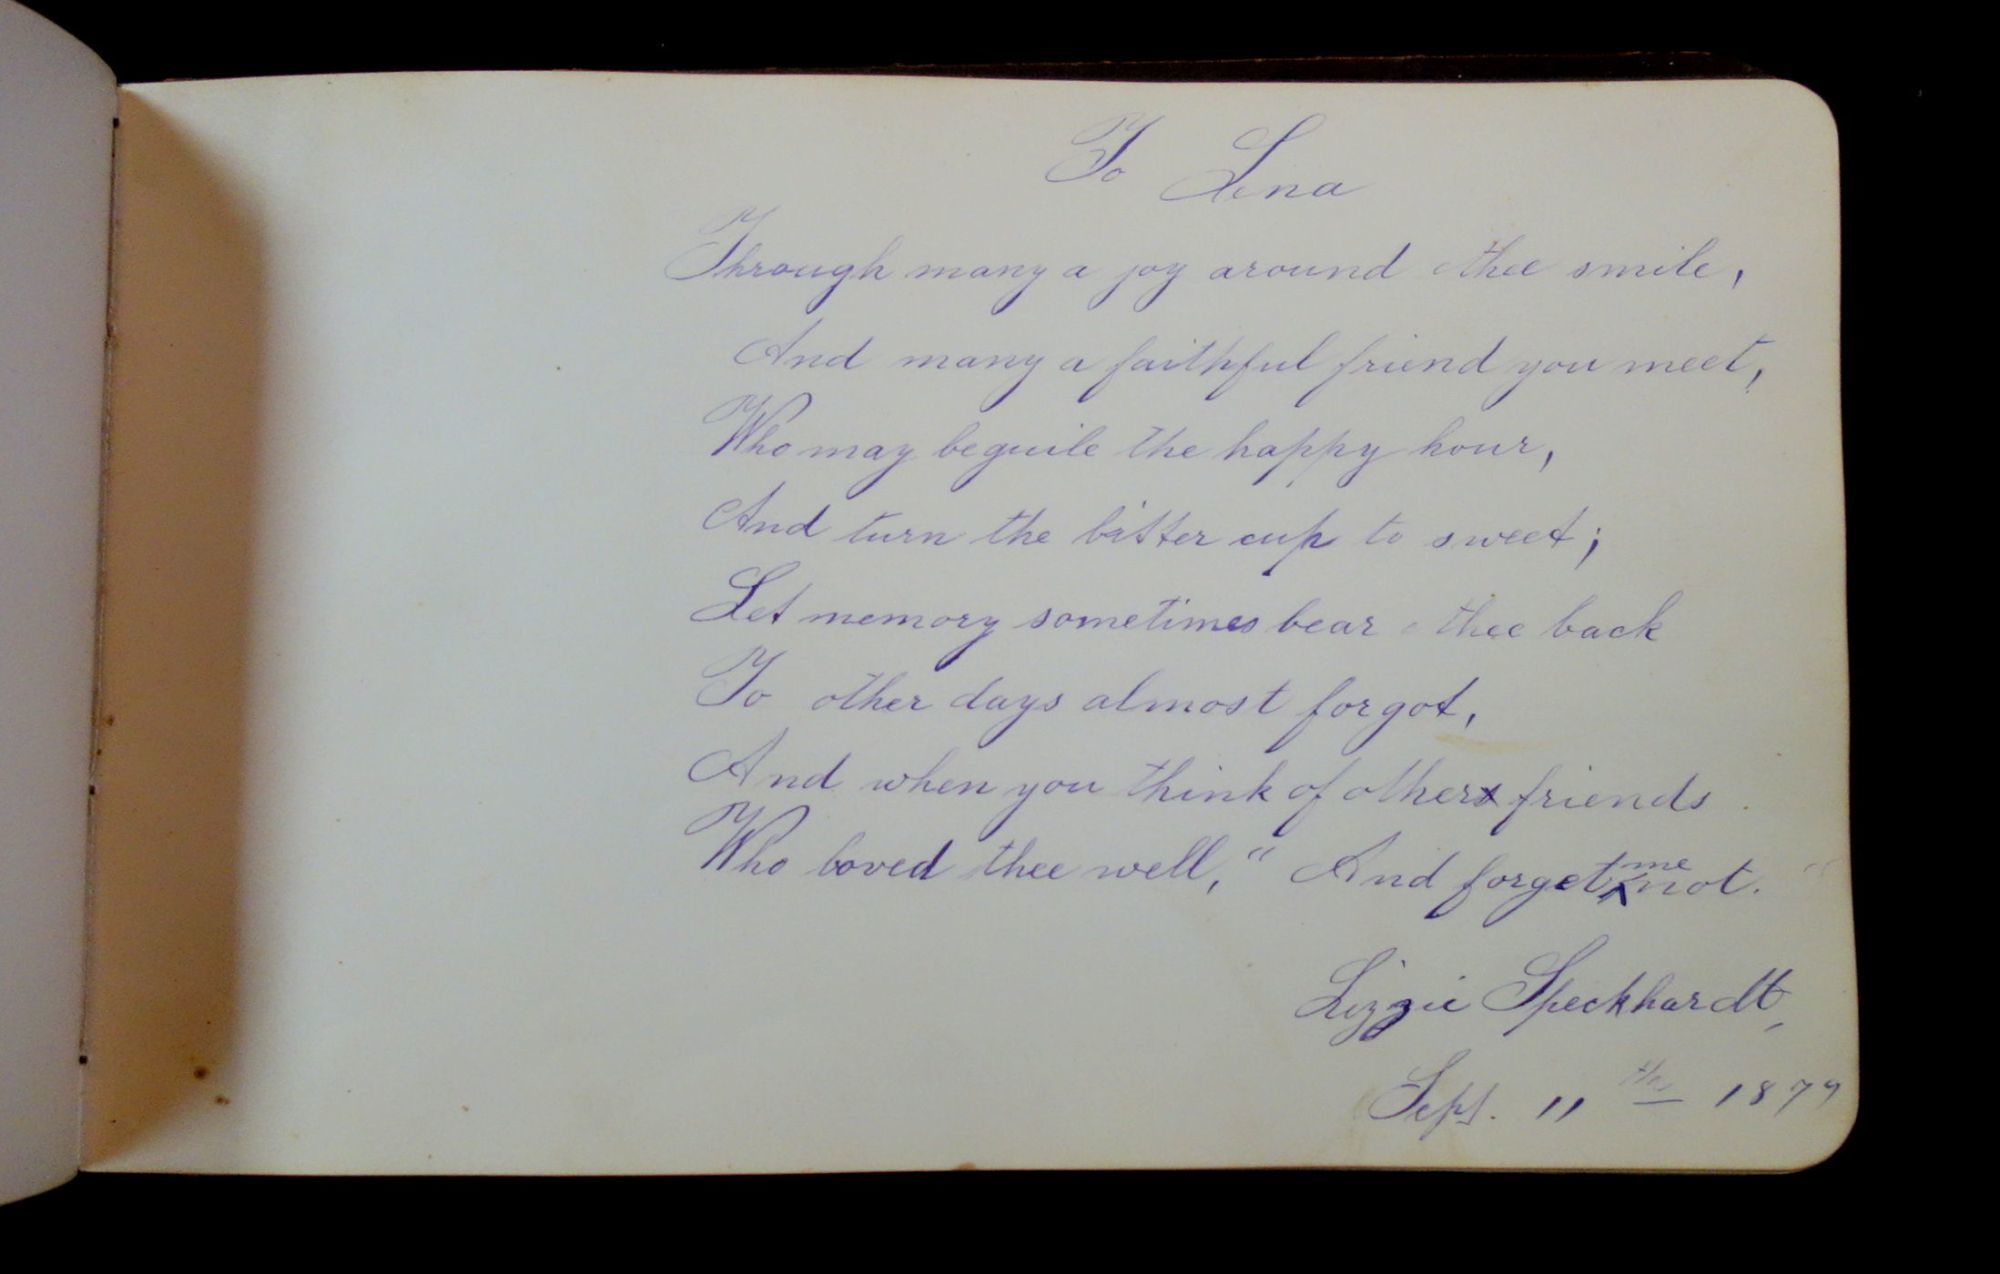 To Lena
Through many a joy around thee smile,
And many a faithful friend you meet,
Who may beguile the happy hour,
And turn the bitter cup to sweet;
Let memory sometimes bear thee back
To other days almost forgot,
And when you think of other friends
Who loved thee well, " And forget me not. "
Lizzie Speckhardt,
Sept. 11th 1879